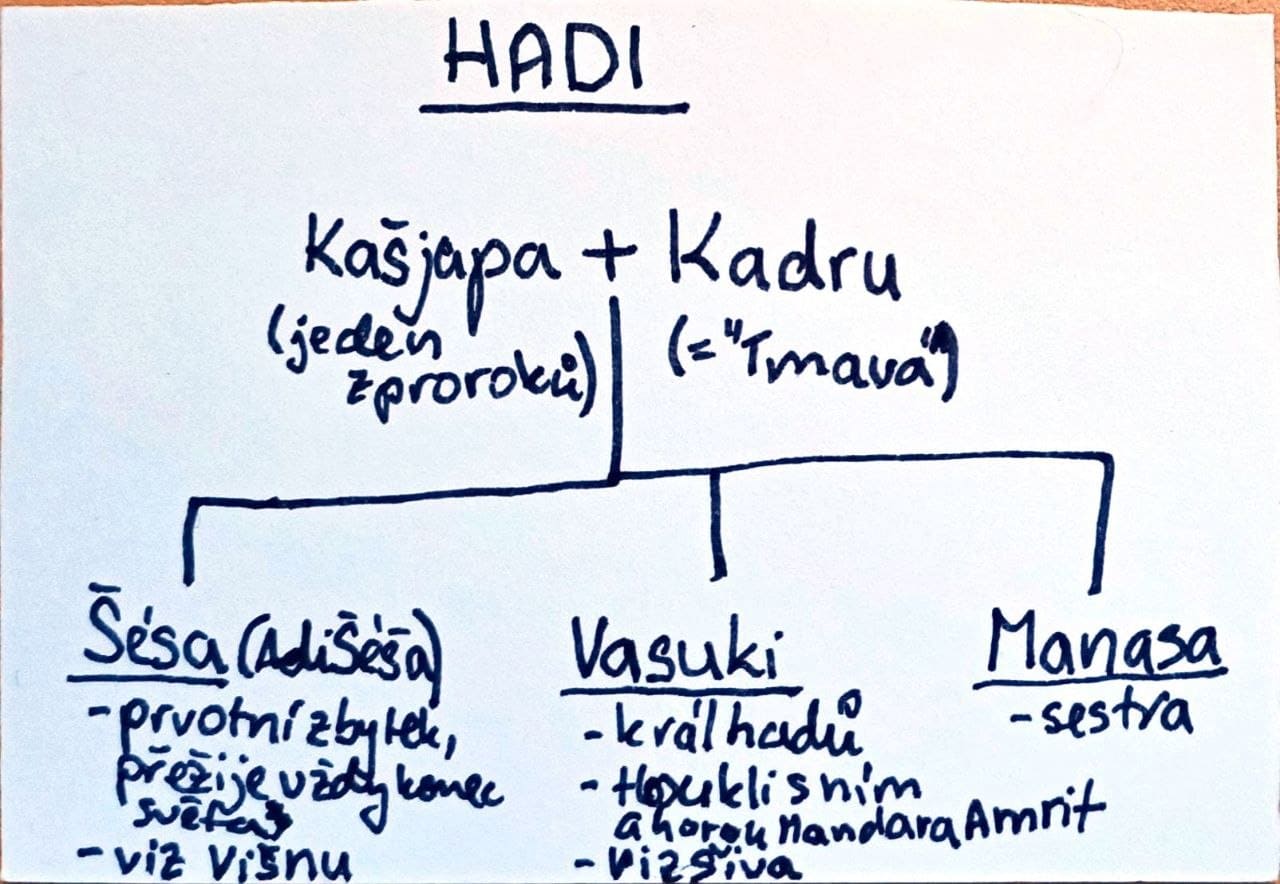 HADI
Kašjapa + Kadru
(jeden z proroků)
(="Tmavá")
Šéša (AdiŠéša)
-prvotní zbytek,
přežije vždy konec
světa
- viz Višnu
Vasuki
-král hadů
- s ním
a horou Mandara Amrit
- viz Šiva
Manasa
-sestra